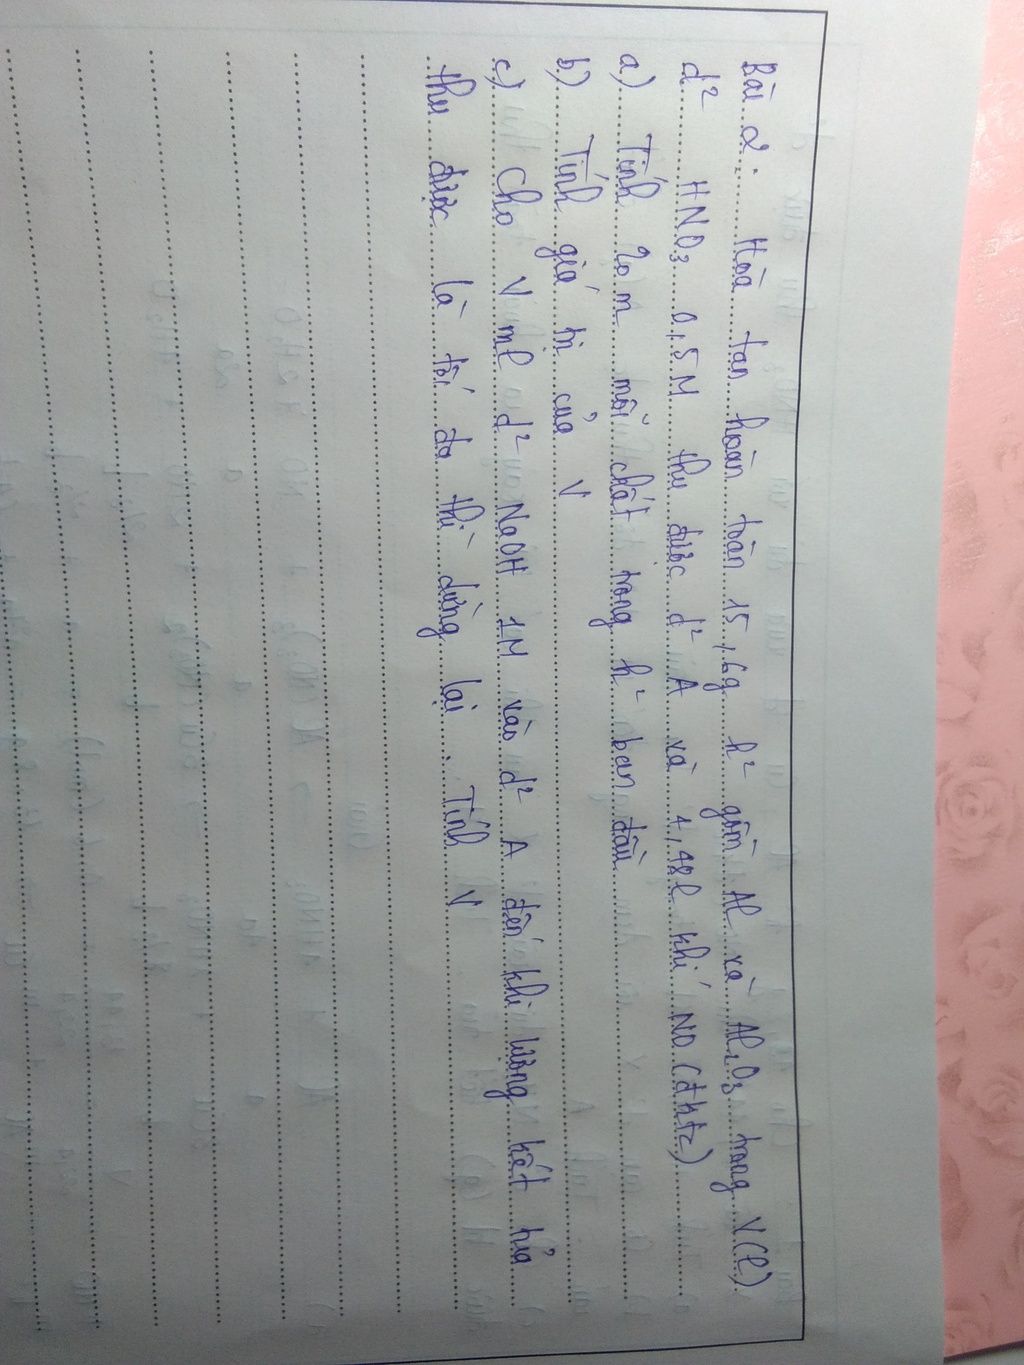 Bài 2: Hoà tan hoàn toàn 15,6g h² gồm Al và Al₂O₃ trong V(l)
d² HNO₃ 0,5M thu được d² A và 4,48l khí NO (đktc)
a) Tính % m mỗi chất trong h² ban đầu
b) Tính giá trị của V
c) Cho V ml d² NaOH 1M vào d² A đến khi lượng kết tủa
thu được là tối đa thì dừng lại. Tính V